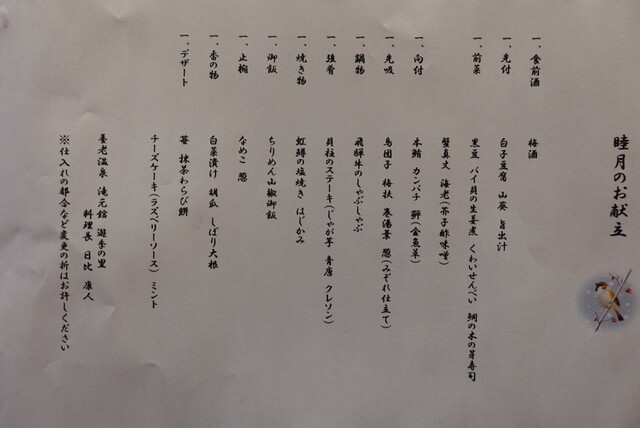 睦月のお献立
一、食前酒 梅酒
一、先付 白子豆腐 山葵 旨出汁
一、前菜 黒豆 バイ貝の生姜煮 くわいせんべい 鯛の木の芽寿司
蟹真丈 海老(芥子酢味噌)
一、向付 本鮪 カンパチ 鮃(金魚草)
一、先吸 鳥団子 梅扶 巻湯葉 葱(みぞれ仕立て)
一、鍋物 飛騨牛のしゃぶしゃぶ
一、強肴 貝柱のステーキ(じゃが芋 青唐 クレソン)
一、焼き物 虹鱒の塩焼き はじかみ
一、御飯 ちりめん山椒御飯
一、止椀 なめこ 葱
一、香の物 白菜漬け 胡瓜 しぼり大根
一、デザート 苺 抹茶わらび餅
チーズケーキ(ラズベリーソース) ミント
養老温泉 滝元館 遊季の里
料理長 日比 康人
※仕入れの都合など変更の折はお許しください